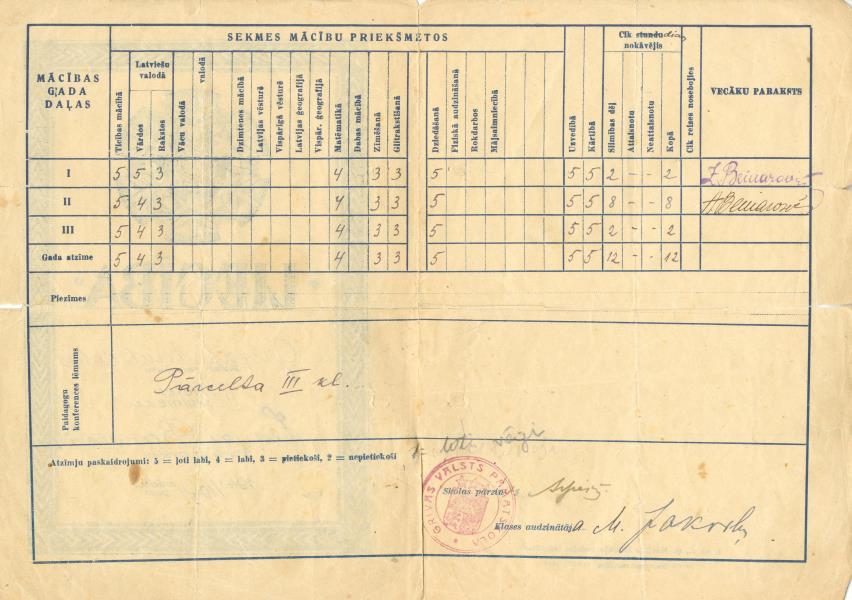 SEKMES MĀCĪBU PRIEKŠMETOS
MĀCĪBAS GADA DAĻAS
Ticības mācībā
Latviešu valodā
Vārdos
Rakstos
Vācu valodā
valodā
Dzimtenes mācībā
Latvijas vēsturē
Vispārīgā vēsturē
Latvijas ģeografijā
Vispār. ģeografijā
Matēmatikā
Dabas mācībā
Zīmēšanā
Glītrakstīšanā
Dziedāšanā
Fiziskā audzināšanā
Rokdarbos
Mājsaimniecībā
Uzvedībā
Kārtībā
Cik stundu dien nokavējis
Slimības dēļ
Attaisnotu
Neattaisnotu
Kopā
Cik reizes nosebojies
VECĀKU PARAKSTS
I 5 5 3 4 3 3 5 5 5 2 - - 2
II 5 4 3 4 3 3 5 5 5 8 - - 8
III 5 4 3 4 3 3 5 5 5 2 - - 2
Gada atzīme 5 4 3 4 3 3 5 5 5 12 - - 12
Piezīmes
Paidagogu konferences lēmums
Pārcelta III kl.
Atzīmju paskaidrojumi: 5 = ļoti labi, 4 = labi, 3 = pietiekoši, 2 = nepietiekoši
1= ļoti vāji
GRĪVAS VALSTS PAMATSKOLA
Skolas pārzinis
Klases audzinātāja M.